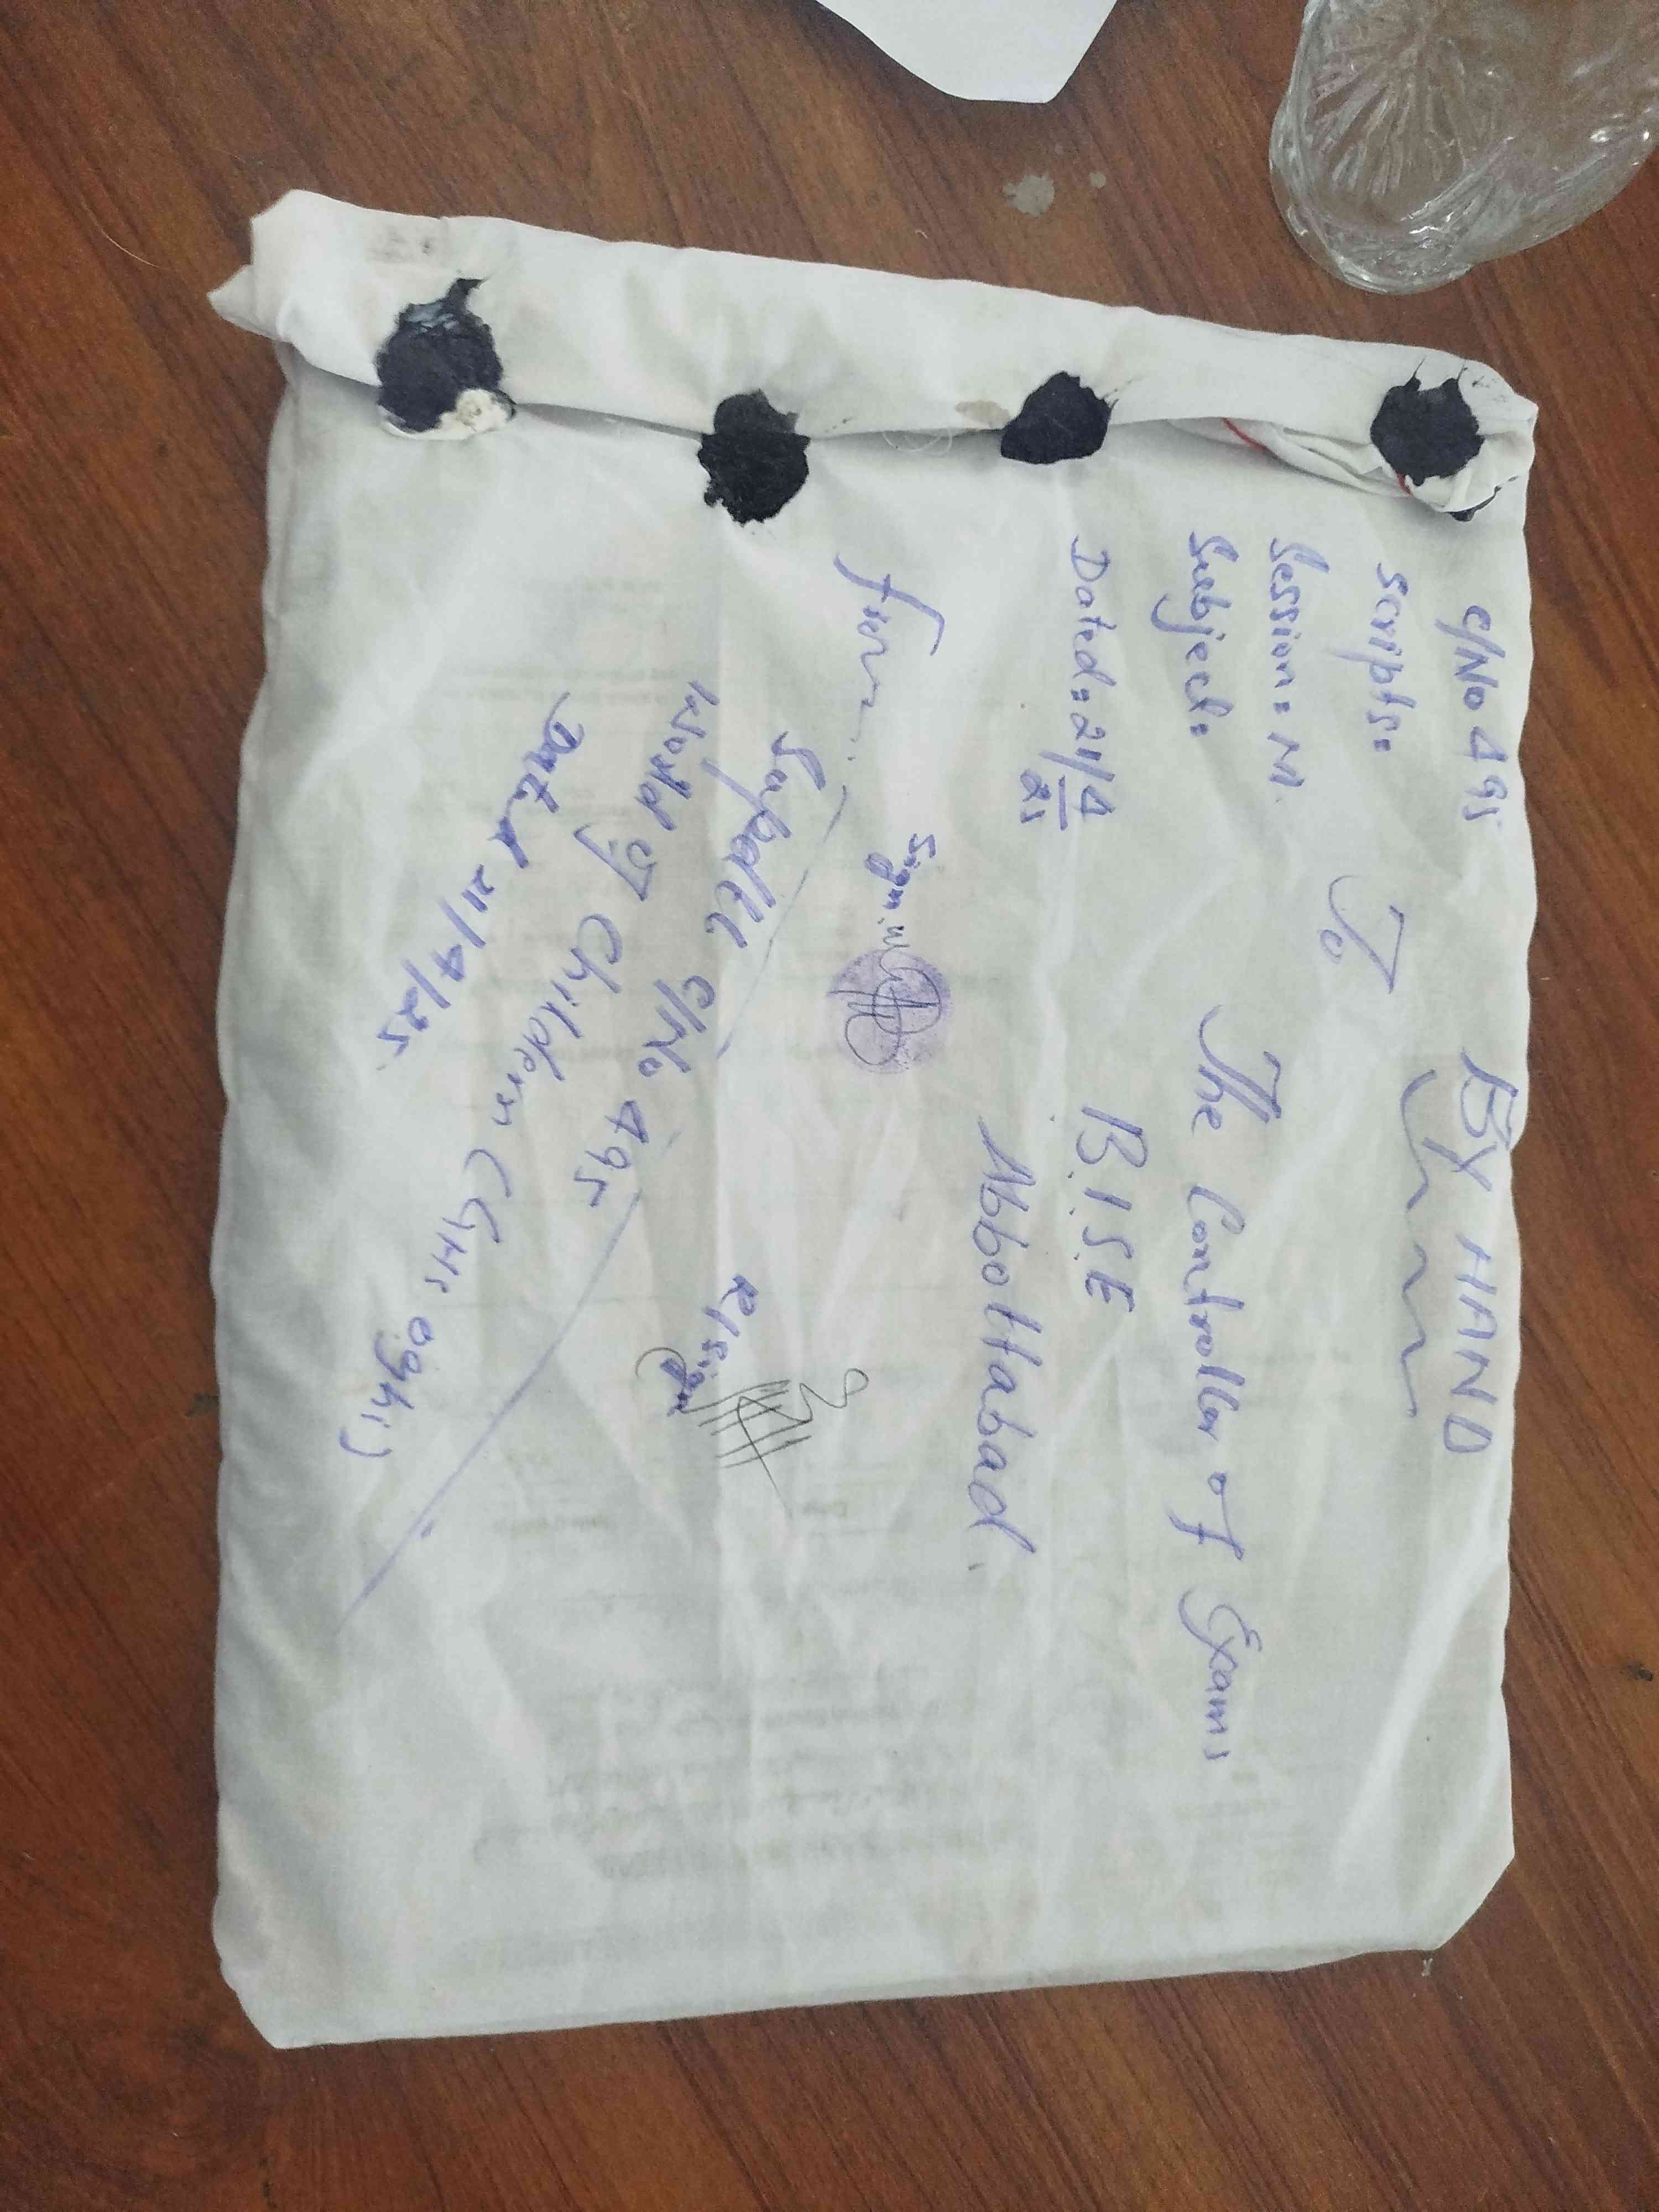 C/No 495
BY HAND
Scripts=
Session= M.
Subject=
Dated= 21/4/25
To
The Controller of Exams
B.I.S.E
Abbottabad.
from
Sign
Supdtt C/No 495
World of Childern (GHS oghi)
Dated 21/4/25
R/Sign